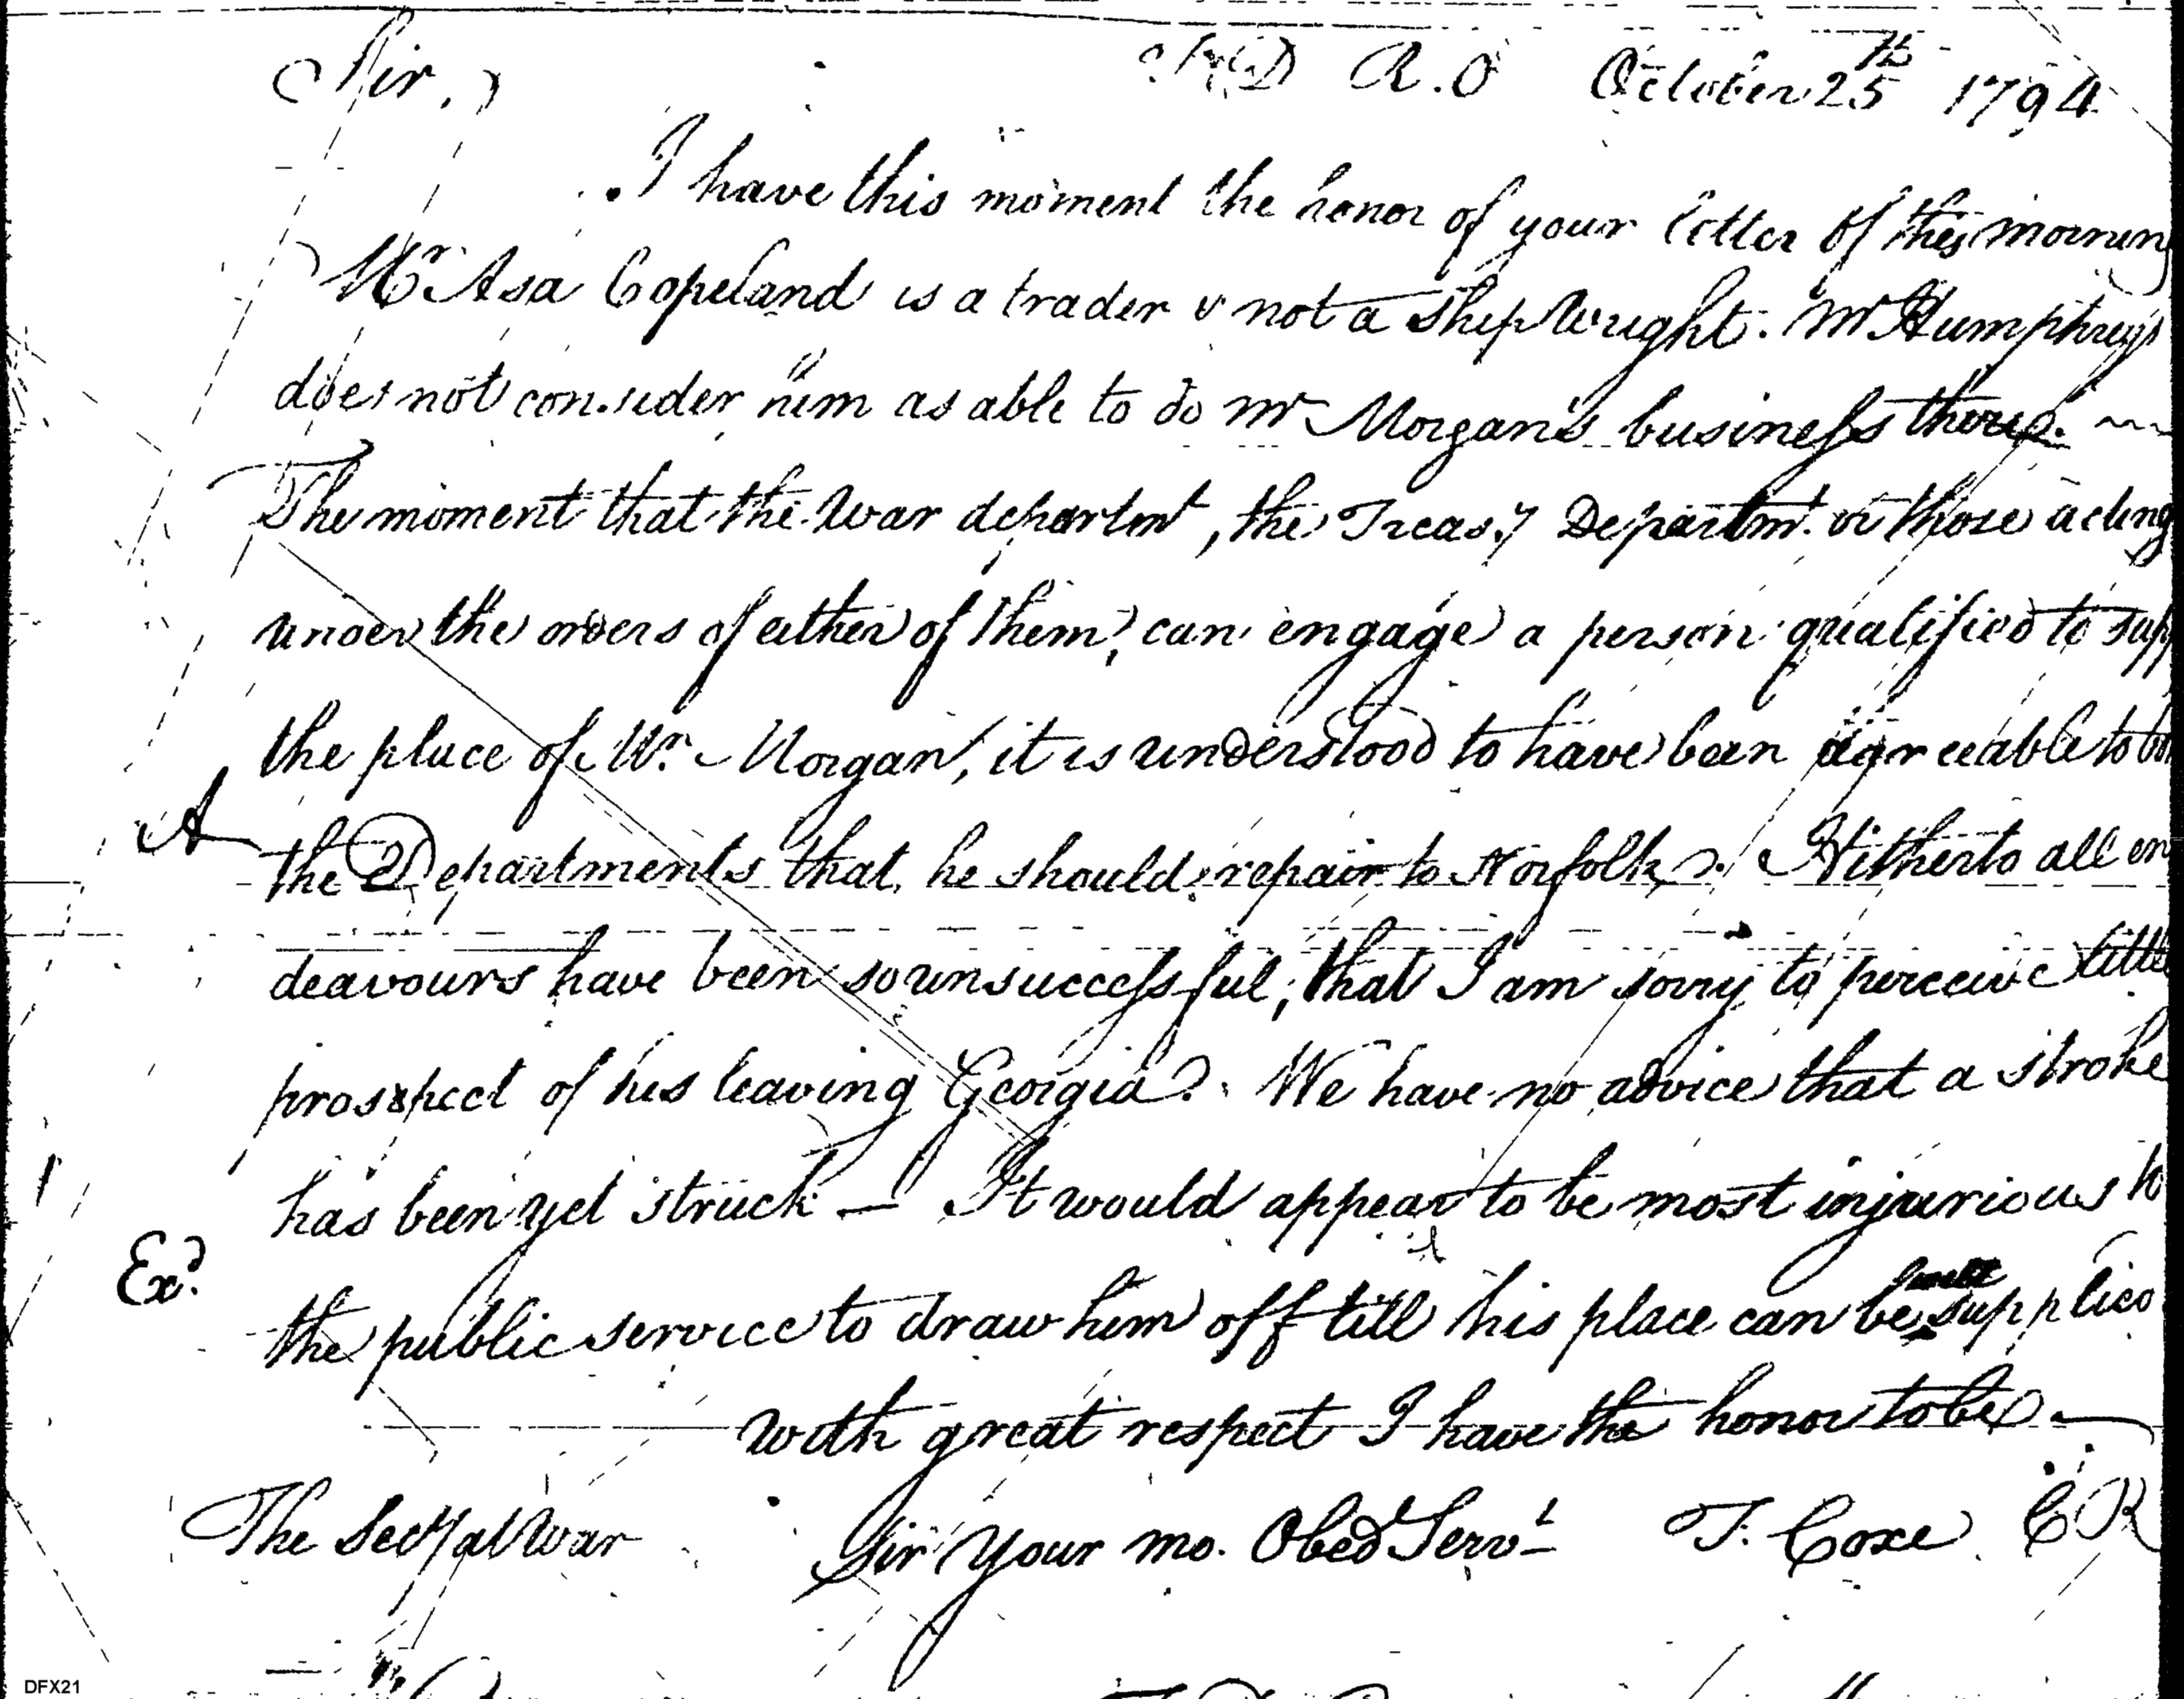 Sir, R.O October 25th 1794
I have this moment the honor of your letter of this mornin
Mr Asa Copeland is a trader & not a Ship Wright. Mr Humphreys
does not consider him as able to do Mr Morgan's business there.
The moment that the War departmt, the Treasy Departmt. or those acting
under the orders of either of them, can engage a person qualified to sup
the place of Mr. Morgan, it is understood to have been agreeable to bo
A
the 2 Departments that he should repair to Norfolk. Hitherto all en
deavours have been so unsuccessful, that I am sorry to perceive little
prospect of his leaving Georgia. We have no advice that a stroke
has been yet struck — It would appear to be most injurious to
Exd.
the public service to draw him off till his place can be supplied
with great respect I have the honor to be —
The Secy at War Sir Your mo. Obed Servt T. Coxe CR
DFX21